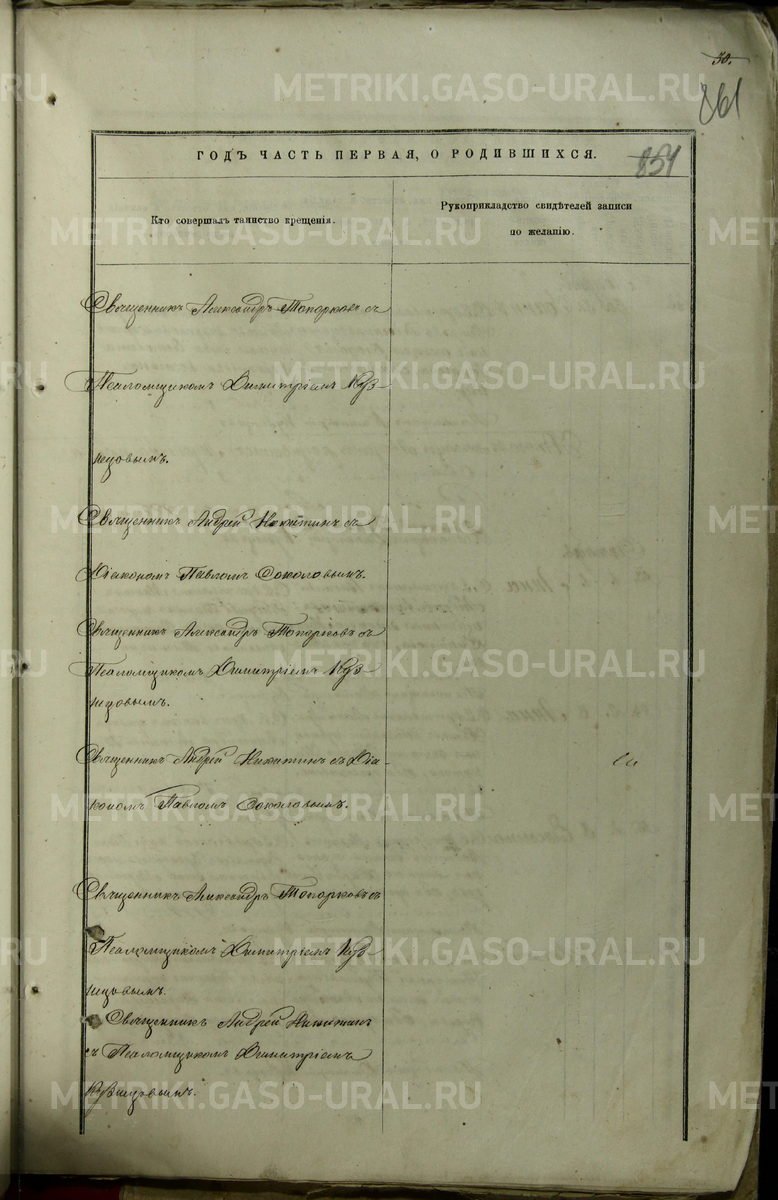 50.
861
ГОДЪ ЧАСТЬ ПЕРВАЯ, О РОДИВШИХСЯ.
Кто совершалъ таинство крещенія.
Рукоприкладство свидѣтелей записи
по желанію.
Священникъ Александръ Топорковъ съ
Псаломщикомъ Димитріемъ Куз-
нецовымъ.
Священникъ Андрей Никитинъ съ
Діакономъ Павломъ Соколовымъ.
Священникъ Александръ Топорковъ съ
Псаломщикомъ Димитріемъ Куз-
нецовымъ.
Священникъ Андрей Никитинъ съ Діа-
кономъ Павломъ Соколовымъ.
Священникъ Александръ Топорковъ съ
Псаломщикомъ Димитріемъ Куз-
нецовымъ.
Священникъ Андрей Никитинъ
съ Псаломщикомъ Димитріемъ
Кузнецовымъ.
METRIKI.GASO-URAL.RU